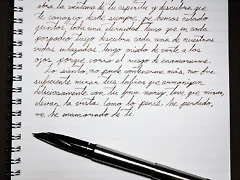 abra la ventana de tu espíritu y descubra que
te conozco desde siempre, que hemos estado
juntos toda una eternidad. Temo que en cada
parpadeo tuyo descubra cada una de nuestras
vidas enlazadas. Tengo miedo de verte a los
ojos, porque corro el riesgo de enamorarme.
Lo siento, no pude contenerme más, no fue
suficiente mirar tus labios que armonizan
con tu fina nariz, tuve que mirar,
elevar la vista. Como lo pensé, he perdido,
me he enamorado de ti